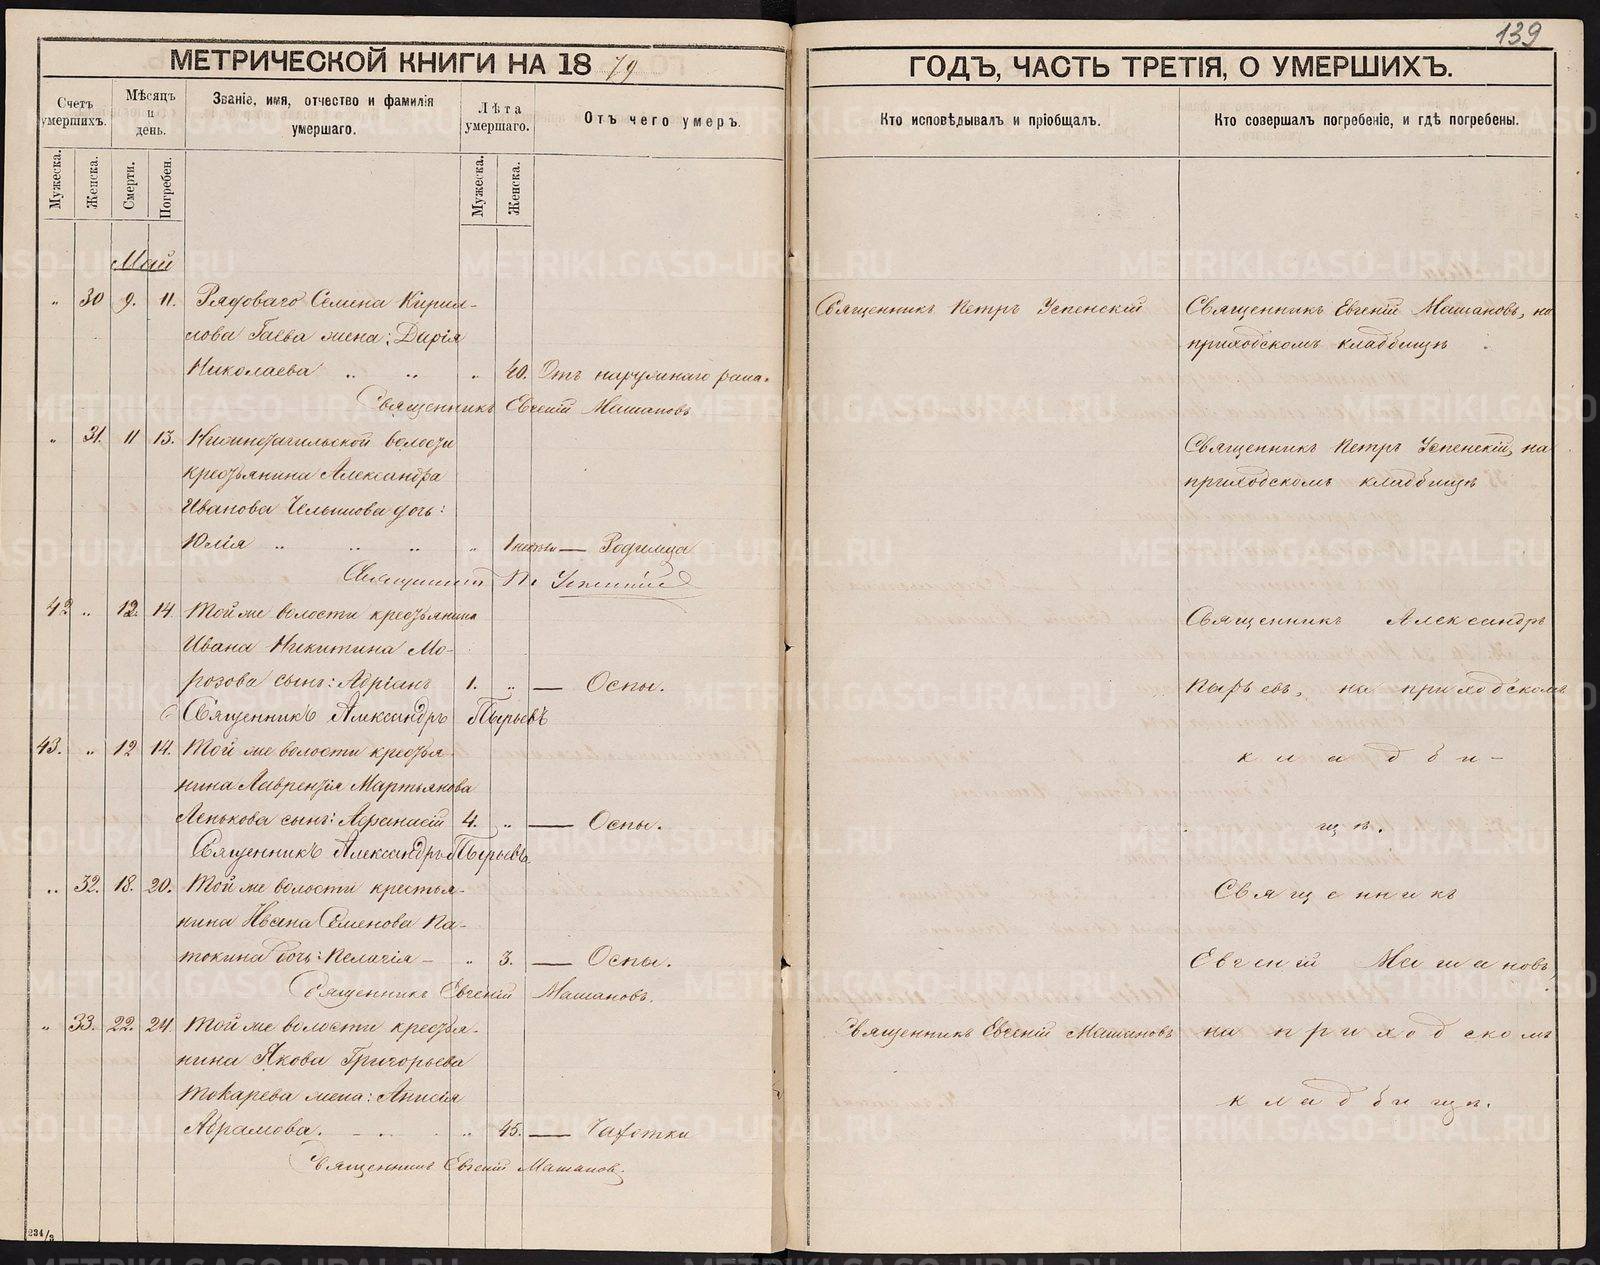 139
МЕТРИЧЕСКОЙ КНИГИ НА 1879
ГОДЪ, ЧАСТЬ ТРЕТІЯ, О УМЕРШИХЪ.
Счетъ умершихъ.
Мѣсяцъ и день.
Званіе, имя, отчество и фамилія умершаго.
Лѣта умершаго.
Отъ чего умеръ.
Кто исповѣдывалъ и пріобщалъ.
Кто совершалъ погребеніе, и гдѣ погребены.
Мужеска.
Женска.
Смерти.
Погребен.
Мужеска.
Женска.
Май
" 30 9. 11. Рядоваго Семена Кирил-
лова Гаева жена: Дарія
Николаева " " " 40. Отъ наружнаго рака.
Священникъ Евгеній Машановъ
Священникъ Петръ Успенскій
Священникъ Евгеній Машановъ, на
приходскомъ кладбищѣ
" 31. 11 13. Нижнетагильской волости
крестьянина Александра
Иванова Челышова дочь:
Юлія " " " " 1 — Родимца
Священникъ П. Успенскій
Священникъ Петръ Успенскій, на
приходскомъ кладбищѣ
42 " 12. 14. Той же волости крестьянина
Ивана Никитина Мо-
розова сынъ: Адріанъ 1. " — Оспы.
Священникъ Александръ Пырьевъ
Священникъ Александръ
Пырьевъ, на приходскомъ
43. " 12 14. Той же волости крестья-
нина Лаврентія Мартьянова
Ленькова сынъ: Афанасій 4. " — Оспы.
Священникъ Александръ Пырьевъ
кладби-
щѣ.
" 32. 18. 20. Той же волости крестья-
нина Ивана Семенова Па-
токина дочь: Пелагія — " 3. — Оспы.
Священникъ Евгеній Машановъ.
Священникъ
Евгеній Машановъ,
" 33. 22. 24. Той же волости крестья-
нина Якова Григорьева
Токарева жена: Анисія
Абрамова. " 45. — Чахотки
Священникъ Евгеній Машановъ
Священникъ Евгеній Машановъ
на приходскомъ
кладбищѣ.
234/3
METRIKI.GASO-URAL.RU